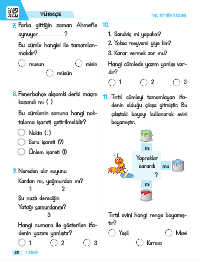 TÜRKÇE
7. Parka gittiğin zaman Ahmet'le
oynuyor ?
Bu cümle hangisi ile tamamlan-
malıdır?
musun
misin
müsün
8. Fenerbahçe akşamki derbi maçını
kazandı mı ( )
Bu cümlenin sonuna hangi nok-
talama işareti getirilmelidir?
Nokta (.)
Soru işareti (?)
Ünlem işareti (!)
9. Nereden alır suyunu
Kardan mı, yağmurdan mı?
1 2
Şu nazlı dereciğin
Yatağı çamurdanmı?
3
Hangi numara ile gösterilen ifa-
denin yazımı yanlıştır?
1 2 3
10.
1. Sandviç mi yapalım?
2. Yoksa meyvemi yiye lim?
3. Karar vermek zor mu?
Hangi cümlede yazım yanlışı var-
dır?
1 2 3
11. Tırtıl cümleyi tamamlayan ifa-
denin olduğu çiçeğe gitmiştir. Bu
çiçekteki boyayı kullanarak evini
boyamıştır.
mı
Yapraklar
sarardı
?
mu
mi
Tırtıl evini hangi renge boyamış-
tır?
Yeşil
Mavi
Kırmızı